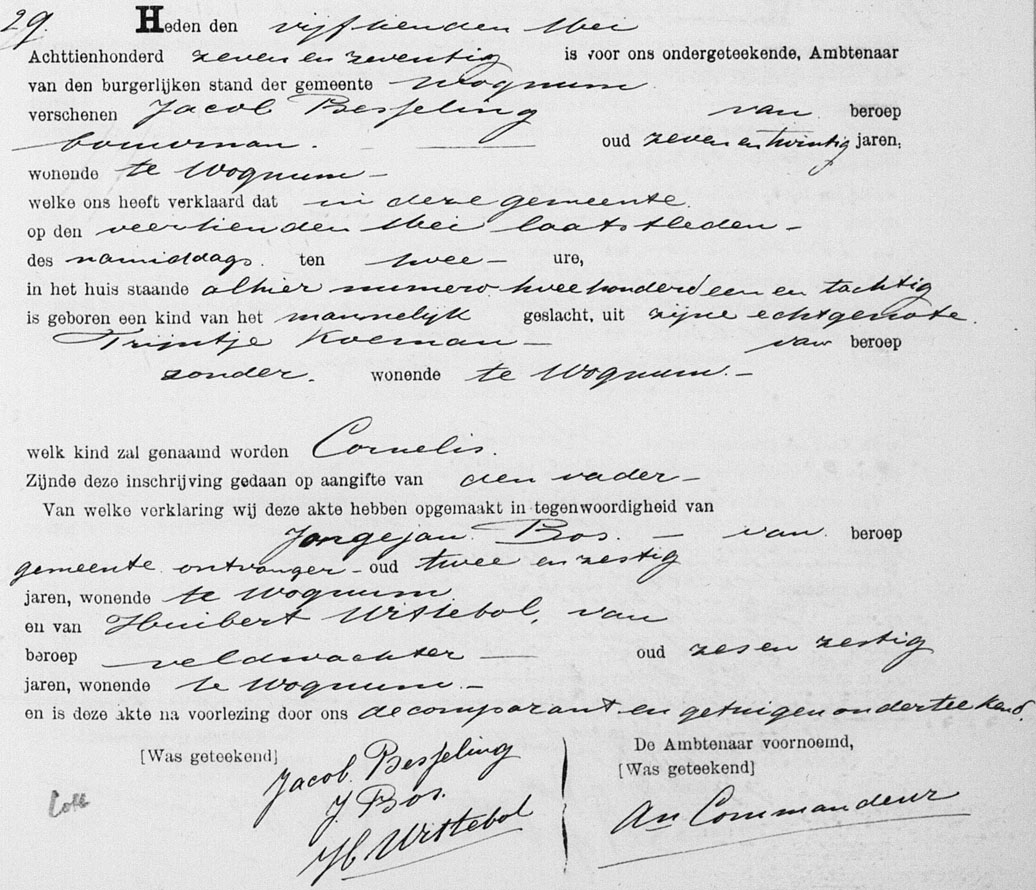 29. Heden den vijftienden Mei
Achttienhonderd zeven en zeventig is voor ons ondergeteekende, Ambtenaar
van den burgerlijken stand der gemeente Wognum
verschenen Jacob Besseling van beroep
bouwman. oud zeven en twintig jaren,
wonende te Wognum –
welke ons heeft verklaard dat in deze gemeente
op den veertienden Mei laatstleden –
des namiddags ten twee – ure,
in het huis staande alhier numero tweehonderd een en tachtig
is geboren een kind van het mannelijk geslacht, uit zijne echtgenote
Trijntje Koeman – van beroep
zonder. wonende te Wognum. –
welk kind zal genaamd worden Cornelis.
Zijnde deze inschrijving gedaan op aangifte van den vader –
Van welke verklaring wij deze akte hebben opgemaakt in tegenwoordigheid van
Jongejan Bos. – van beroep
gemeente ontvanger – oud twee en zestig
jaren, wonende te Wognum
en van Huibert Uittebol, van
beroep veldwachter – oud zes en zestig
jaren, wonende te Wognum. –
en is deze akte na voorlezing door ons de comparant en getuigen onderteekend.
[Was geteekend] De Ambtenaar voornoemd,
Jacob Besseling [Was geteekend]
J Bos.
H Uittebol An Commandeur
Coll